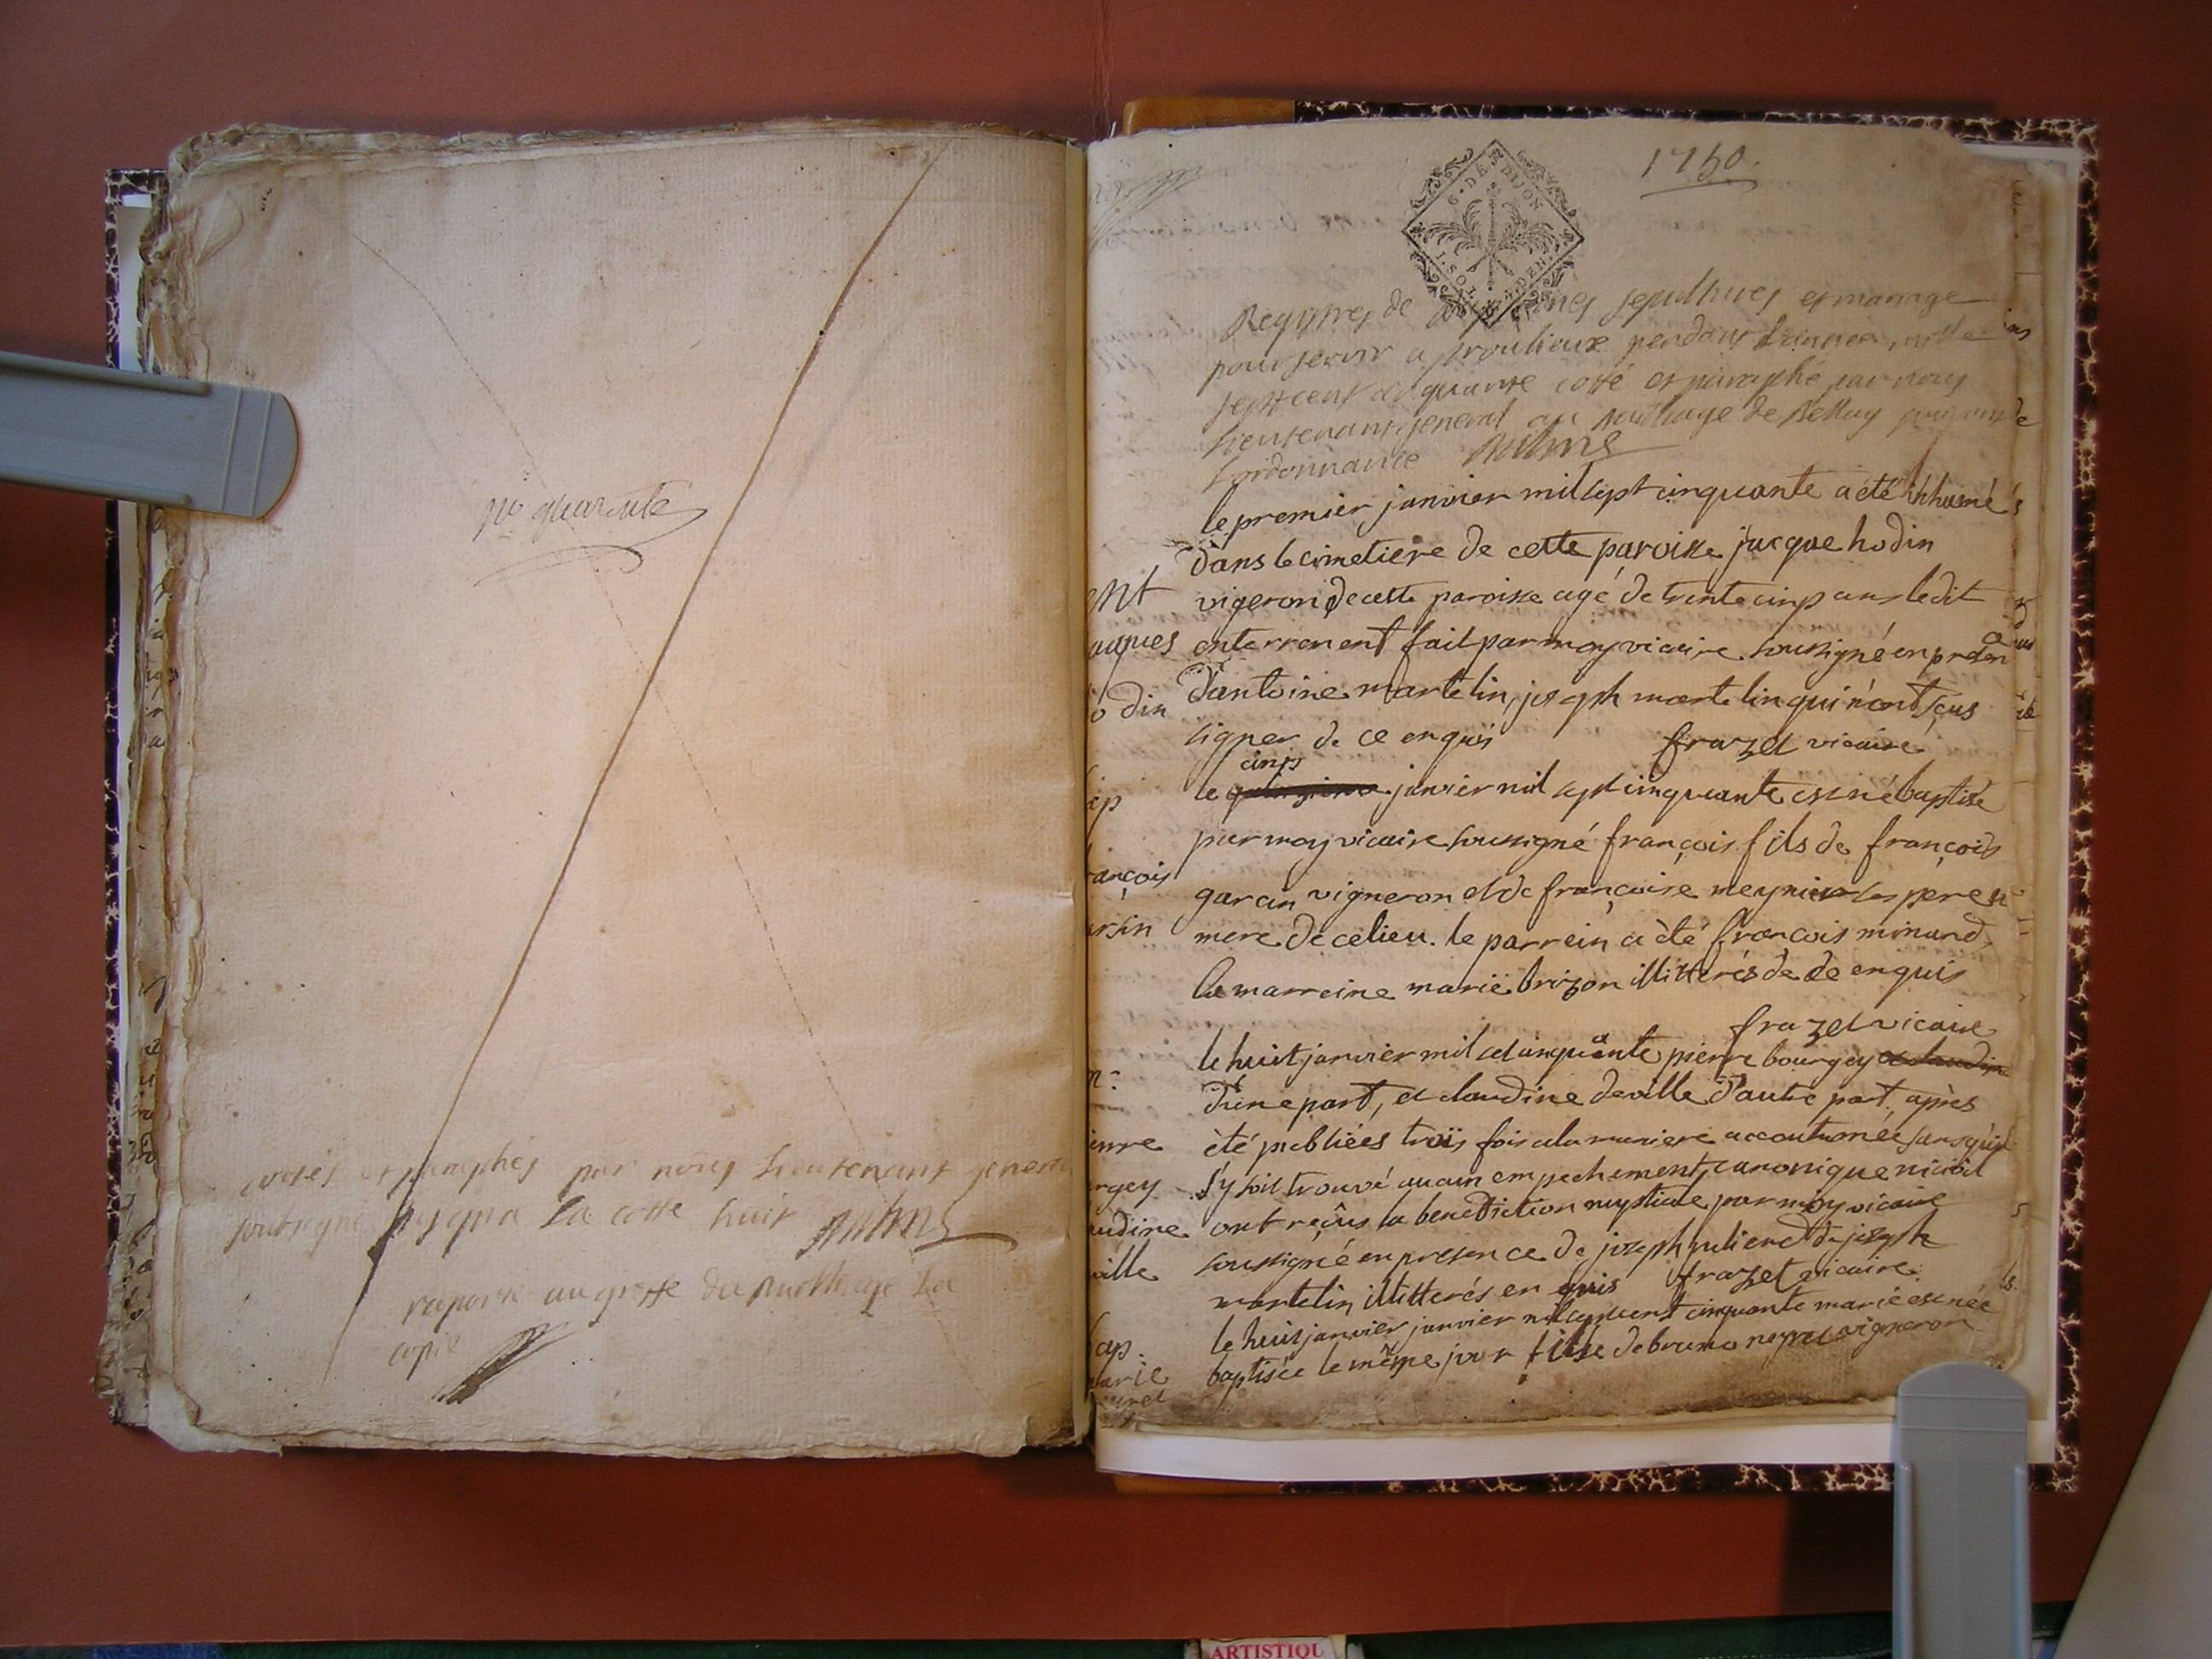 pe quarente
cotés et paraphés par nous Lieutenant general
soubsigné jusqua La cotte huit
raporté au greffe du bailliage La
copie
1750.
G. DE DIJON
1. SOL DEN.
Registres de sepultures et mariage
pour servir a prouilieux pendant Lannée mille
sept cent cinquante cotté et paraphé par nous
Lieutenant general au bailliage de Belley suivant
Lordonnance
le premier janvier mil sept cinquante a été inhumé
dans le cimetiere de cette paroisse jacque hodin
vigeron de cette paroisse agé de trente cinp ans ledit
enterrement fait par moy vicaire soussigné en presen
d'antoine martelin, joseph martelin qui n'ont sçus
signer de ce enquis frazet vicaire
cinp
le janvier mil sept cinquante est né baptisé
par moy vicaire soussigné françois fils de françois
garcin vigneron et de françoise meynier les pere et
mere de ce lieu. le parrein a été françois minand
la marreine marie brizon illitterés de de enquis
frazet vicaire
le huit janvier mil set cinquante pierre bourgey et claudine
d'une part, et claudine deville d'autre part, après
été publiées trois fois a la maniere accoutumée sans qu'il
s'y soit trouvé aucun empechement canonique ni civil
ont reçûs la benediction nuptiale par moy vicaire
soussigné en presence de joseph juliend de joseph
martelin illitterés enquis frazet vicaire
le huit janvier janvier mil sept cent cinquante marie est née
baptisée le même jour fille de bruno neyret vigneron
ent
acques
o din
ap
rançois
arsin
erre
rgey
audine
ville
ap.
marie